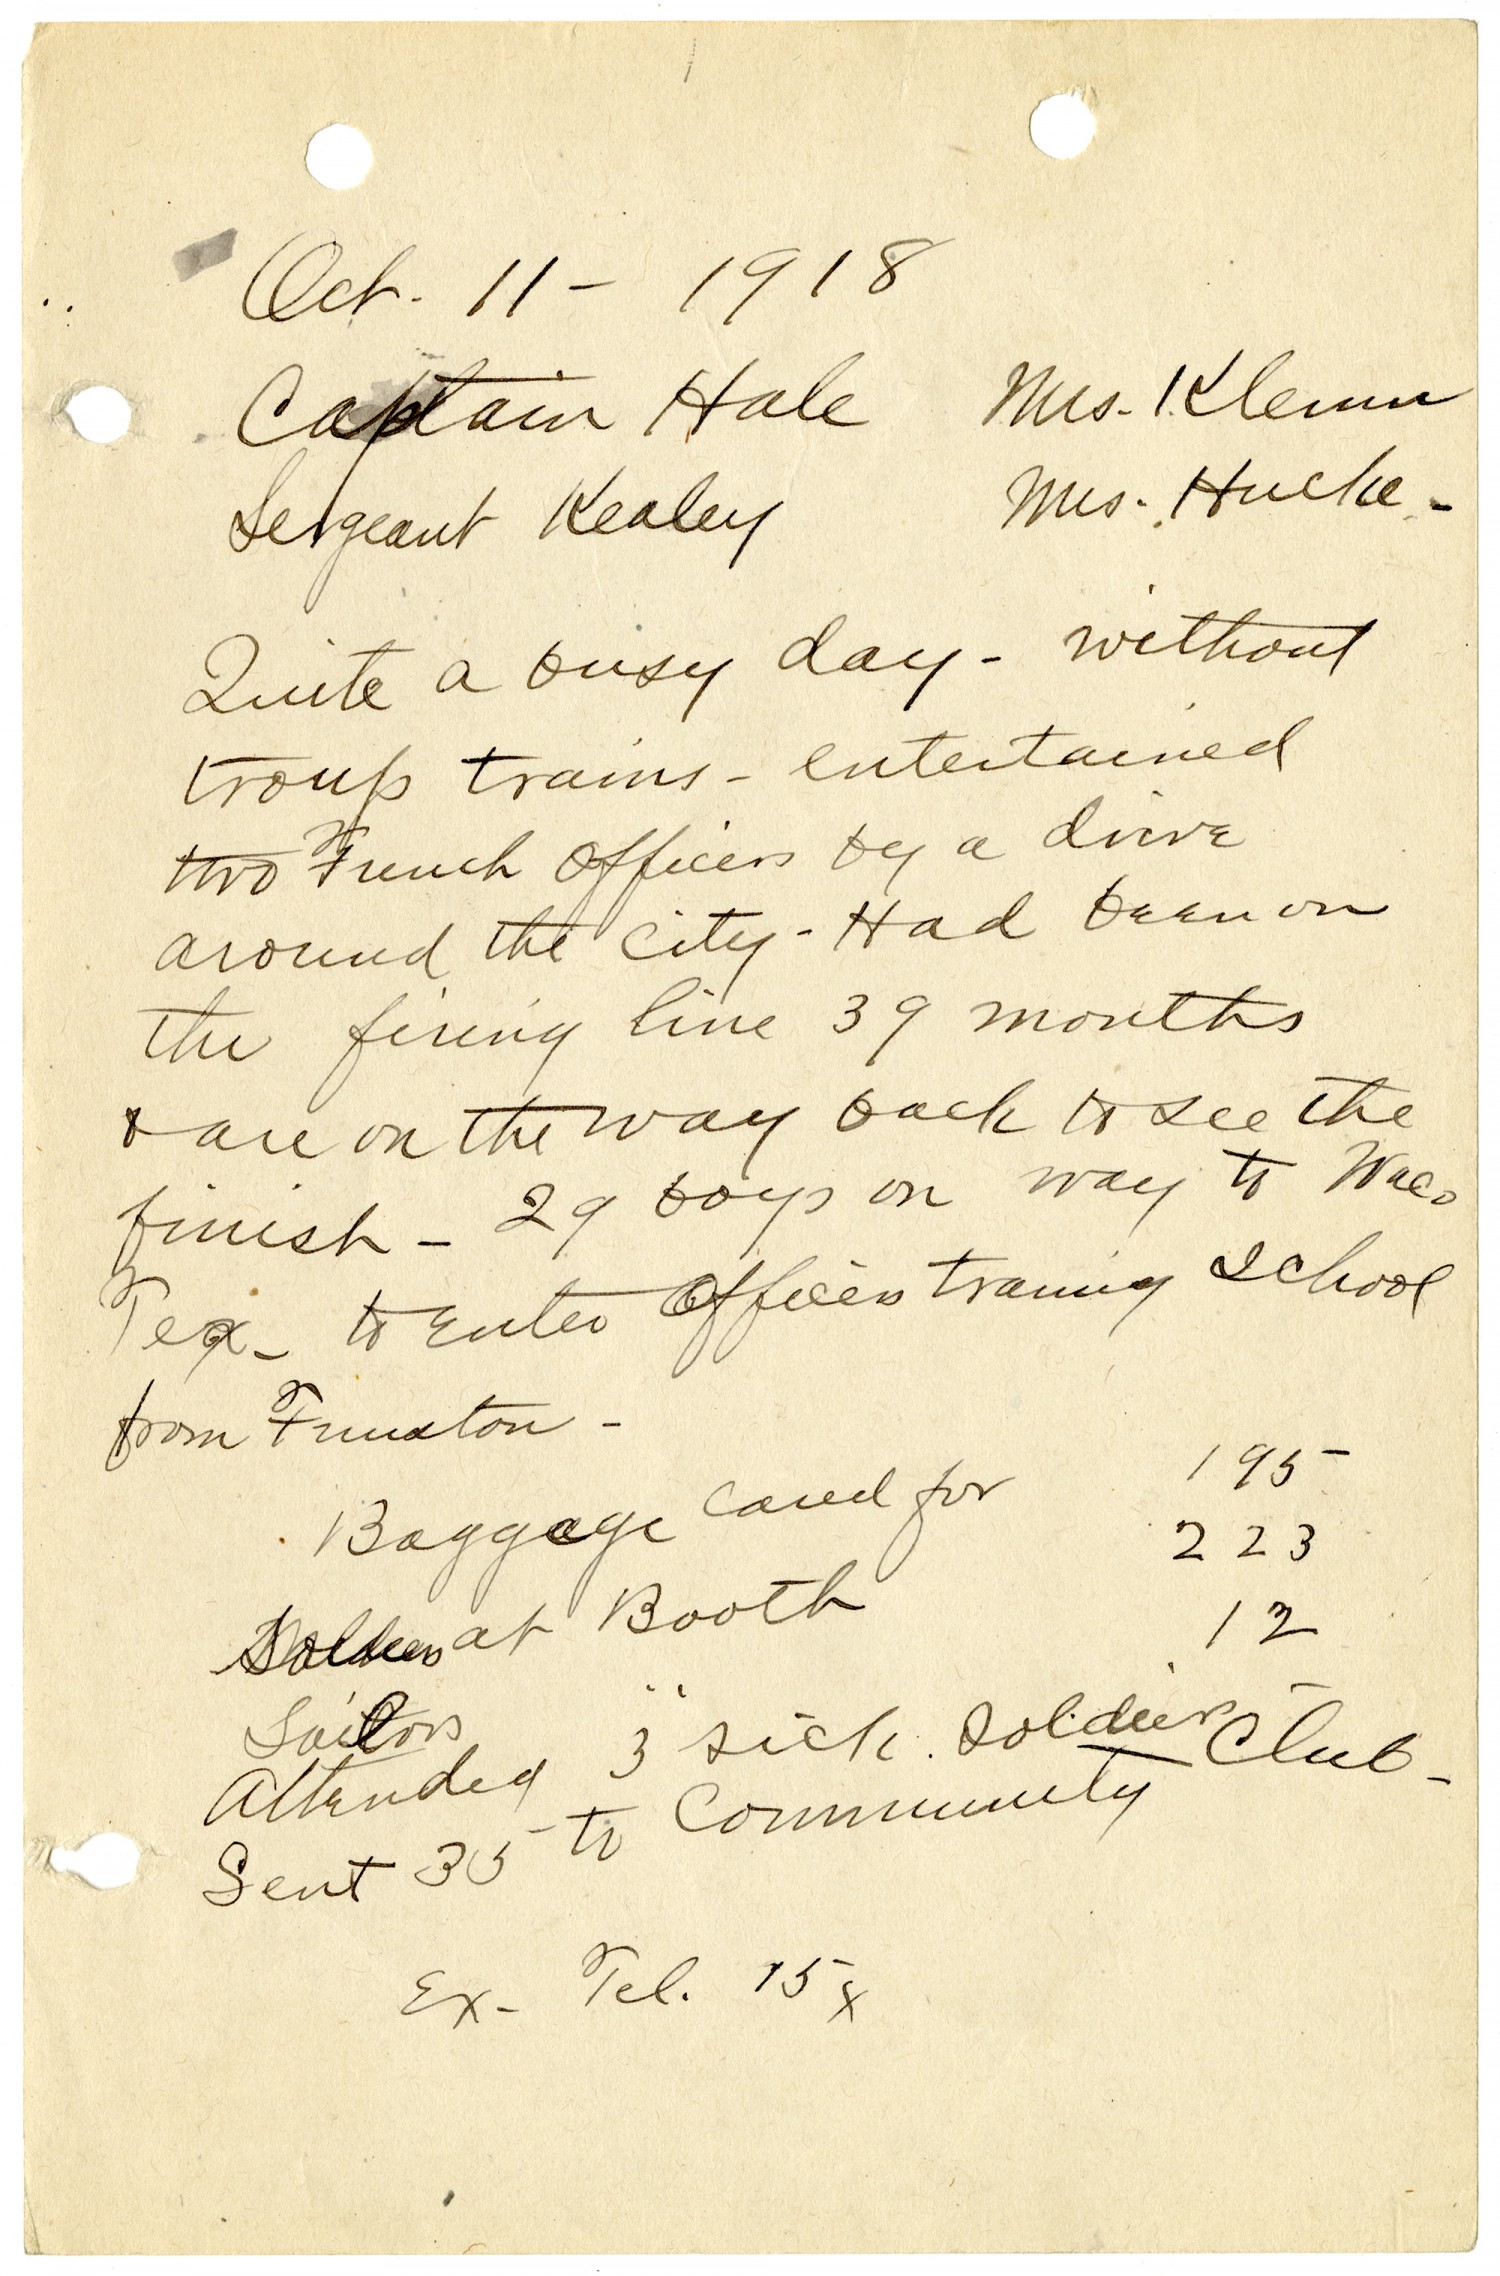 Oct. 11 - 1918
Captain Hale Mrs. Klemm
Sergeant Kealey Mrs. Hucke -
Quite a busy day - without
troup trains - entertained
two French Officers by a drive
around the city - Had been on
the firing line 39 months
& are on the way back to see the
finish - 29 boys on way to Waco
Tex - to enter Officers traning School
from Funston -
Baggage cared for 195
Soldiers at Booth 223
Sailors " " 12
Attended 3 sick soldiers -
Sent 35 to Community Club -
Ex - Tel. 15¢